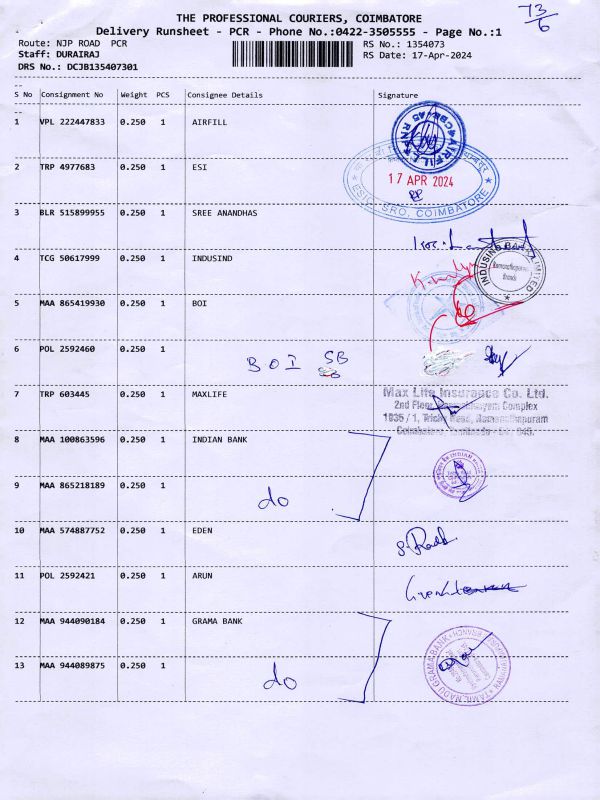 THE PROFESSIONAL COURIERS, COIMBATORE
73/6
Delivery Runsheet - PCR - Phone No.:0422-3505555 - Page No.:1
Route: NJP ROAD PCR
RS No.: 1354073
Staff: DURAIRAJ
RS Date: 17-Apr-2024
DRS No.: DCJB135407301
S No Consignment No Weight PCS Consignee Details Signature
1 VPL 222447833 0.250 1 AIRFILL
2 TRP 4977683 0.250 1 ESI
17 APR 2024
ESIC, SRO, COIMBATORE
3 BLR 515899955 0.250 1 SREE ANANDHAS
4 TCG 50617999 0.250 1 INDUSIND
INDUSIND BANK LIMITED
5 MAA 865419930 0.250 1 BOI
6 POL 2592460 0.250 1
BOI SB
7 TRP 603445 0.250 1 MAXLIFE
Max Life Insurance Co. Ltd.
2nd Floor, Complex
1035 / 1, Trichy Road, Ramanathapuram
Coimbatore,
8 MAA 100863596 0.250 1 INDIAN BANK
9 MAA 865218189 0.250 1
do
10 MAA 574887752 0.250 1 EDEN
11 POL 2592421 0.250 1 ARUN
12 MAA 944090184 0.250 1 GRAMA BANK
13 MAA 944089875 0.250 1
do
TAMIL NADU GRAMA BANK